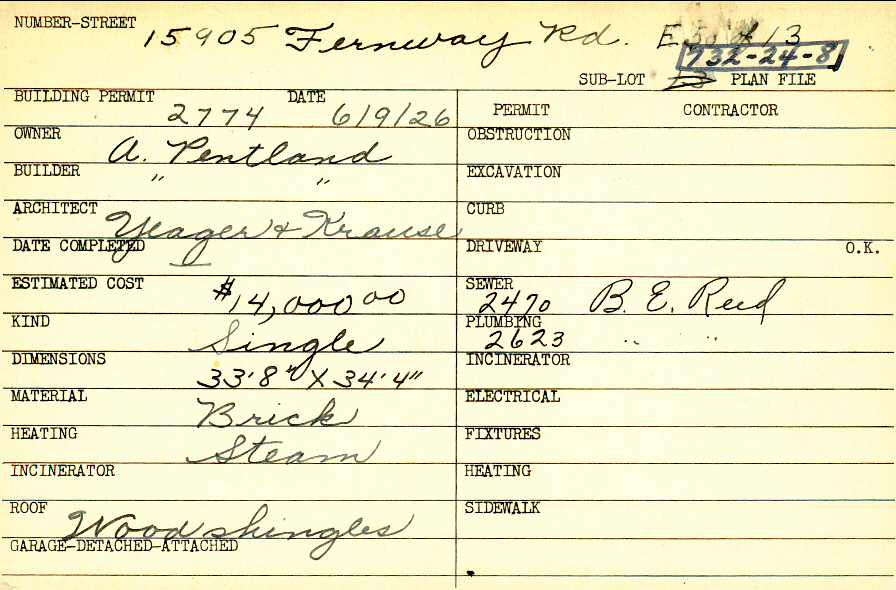 NUMBER-STREET
15905 Fernway Rd. E 50 of 13
732-24-8
SUB-LOT PLAN FILE
BUILDING PERMIT DATE
2774 6/9/26
OWNER A. Pentland
BUILDER " "
ARCHITECT Yeager & Krause
DATE COMPLETED
ESTIMATED COST $14,000 00
KIND Single
DIMENSIONS 33'8" X 34'4"
MATERIAL Brick
HEATING Steam
INCINERATOR
ROOF Wood shingles
GARAGE-DETACHED-ATTACHED
PERMIT CONTRACTOR
OBSTRUCTION
EXCAVATION
CURB
DRIVEWAY O.K.
SEWER
2470 B. E. Reed
PLUMBING
2623 " "
INCINERATOR
ELECTRICAL
FIXTURES
HEATING
SIDEWALK